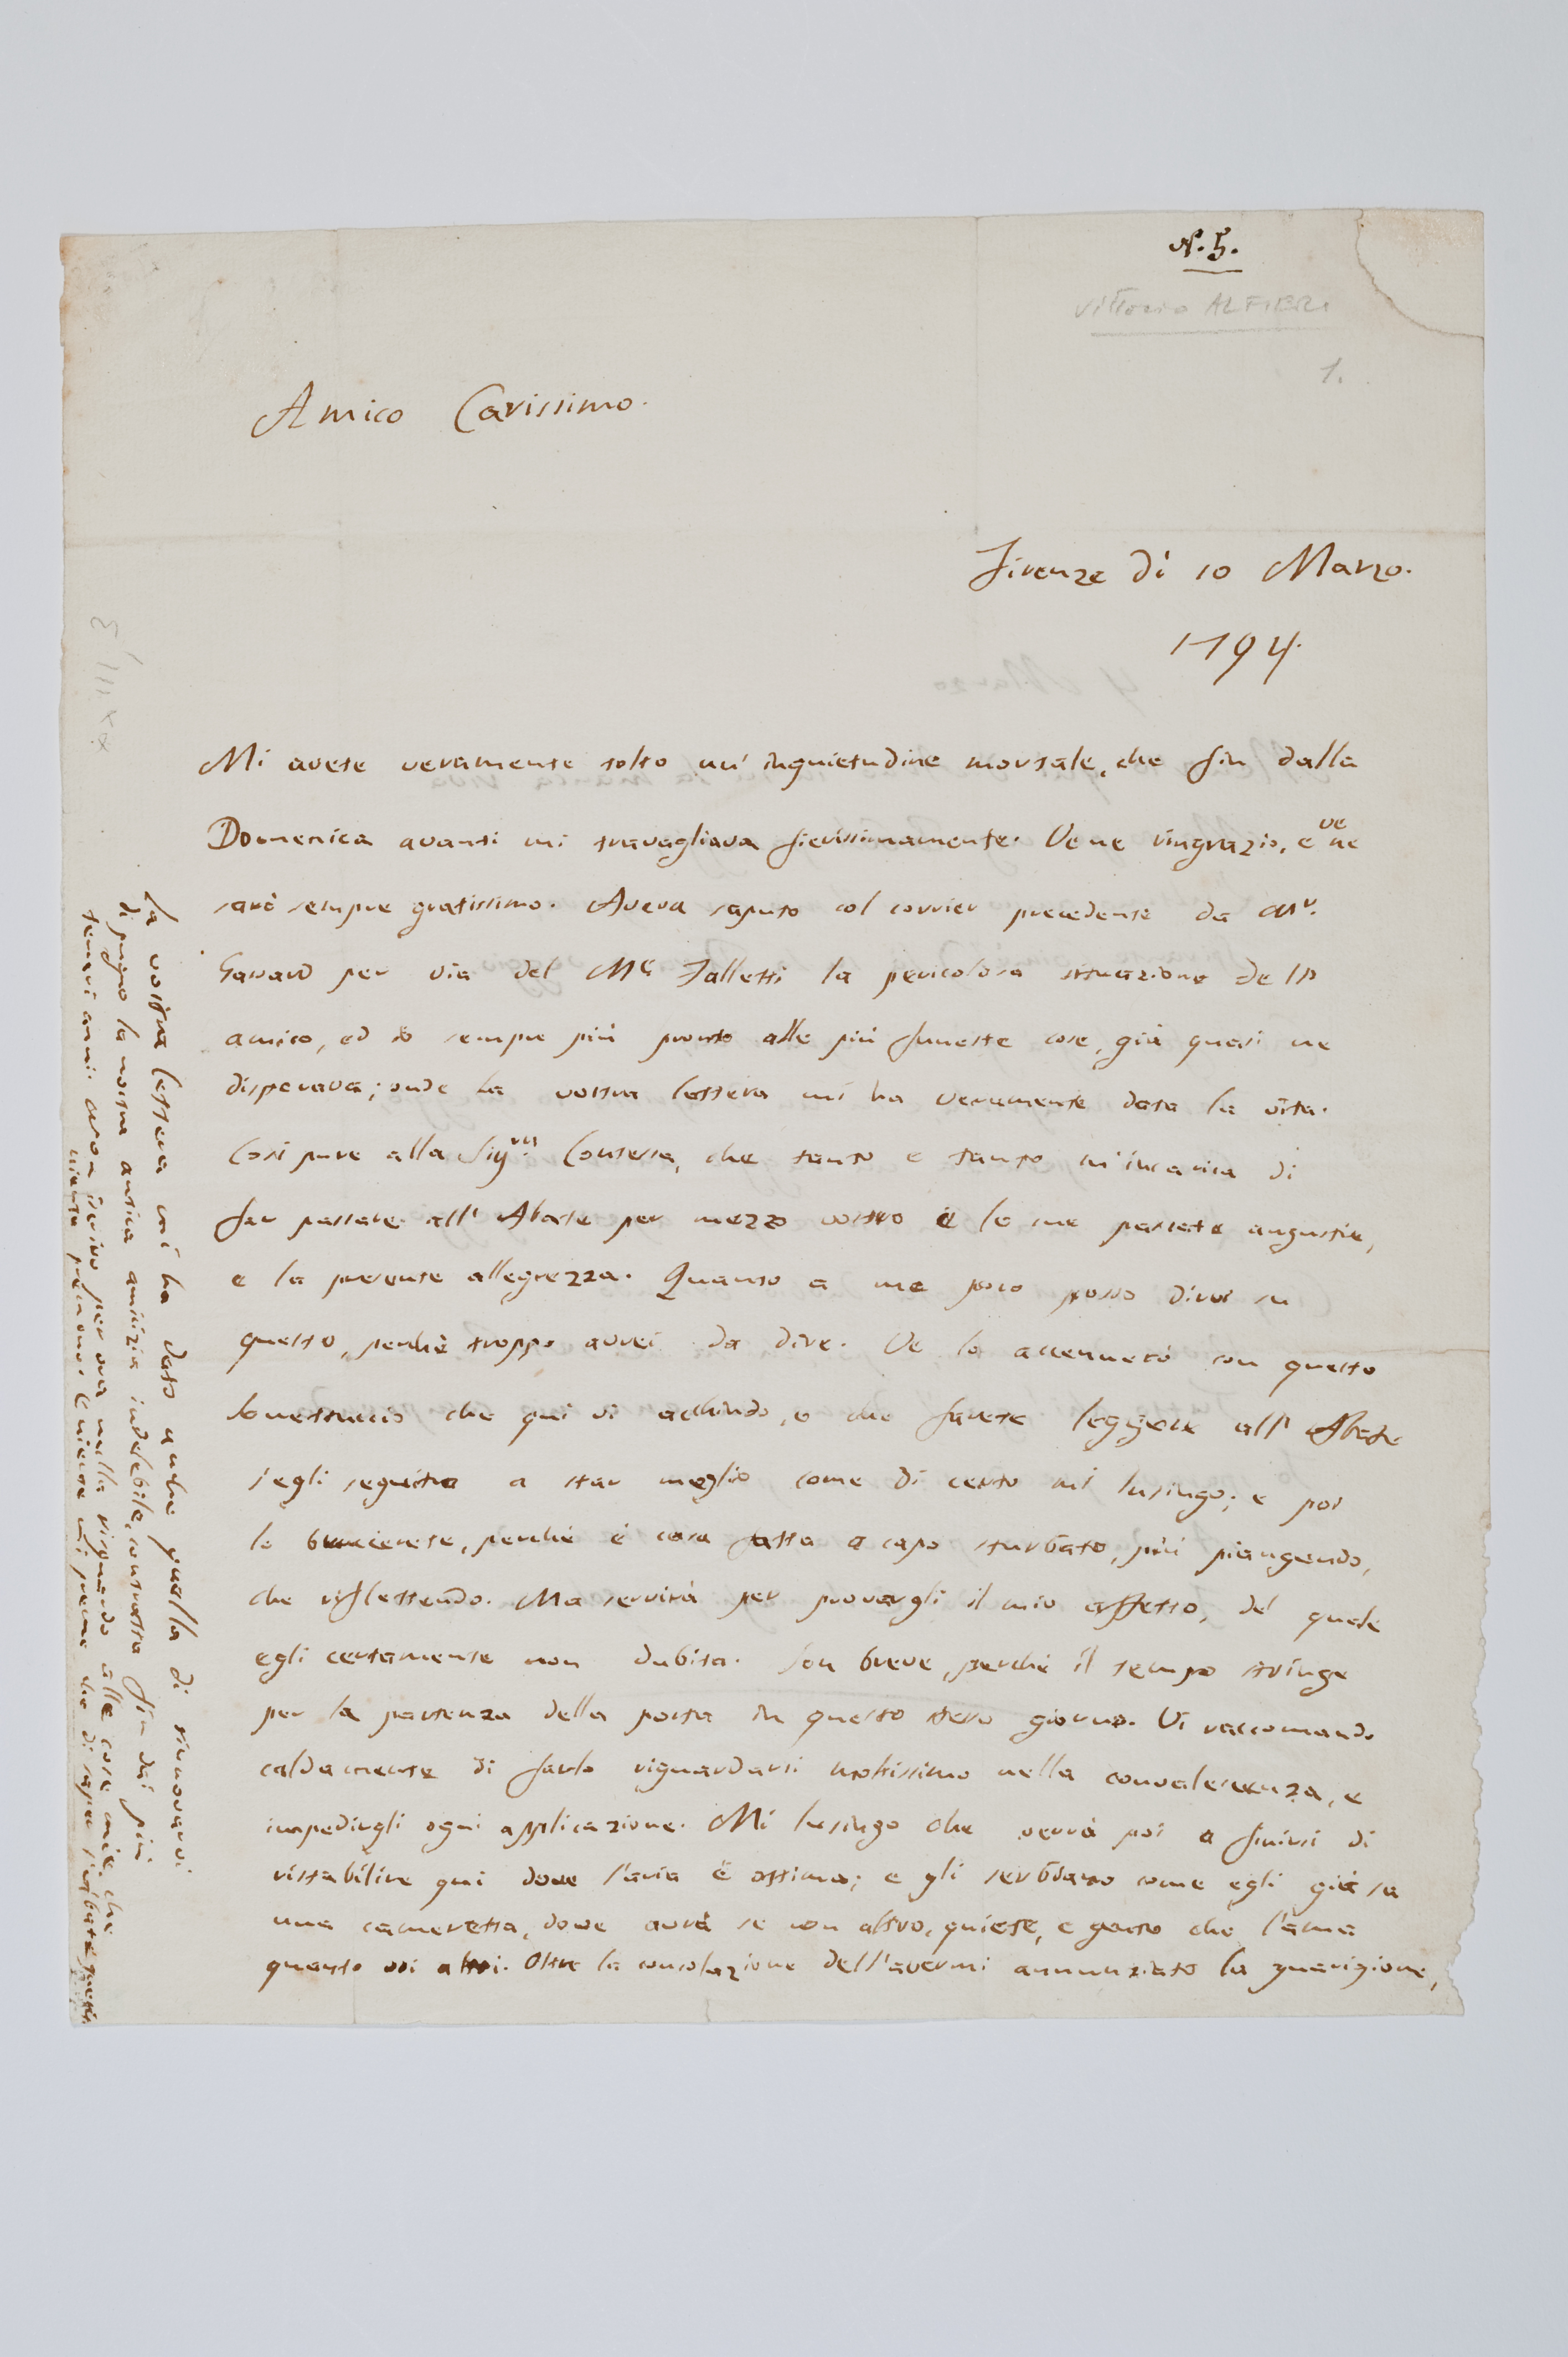 N. 5.
Vittorio ALFIERI
1.
Amico Carissimo.
Firenze dì 10 Marzo.
1794.
Mi avete veramente tolto un' inquietudine mortale, che fin dalla
Domenica avanti mi travagliava fierissimamente. Ve ne ringrazio, e ve ne
sarò sempre gratissimo. Aveva saputo col corrier precedente da Mr.
per via del Mse Falletti la pericolosa situazione dell'
amico, ed io sempre più pronto alle più funeste cose, già quasi ne
disperava; onde la vostra lettera mi ha veramente data la vita.
Così pure alla Sigra. Contessa, che tanto e tanto m'incarica di
far passare all' Abate per mezzo vostro e le sue passate angustie,
e la presente allegrezza. Quanto a me poco posso dirvi su
questo, perchè troppo avrei da dire. Ve lo accennerò con questo
Sonettuccio che qui vi acchiudo, e che farete leggere all' Abate
s'egli seguita a star meglio, come di certo mi lusingo; e poi
lo brucierete, perchè è cosa fatta a capo sturbato, più piangendo,
che riflettendo. Ma servirà per provargli il mio affetto, del quale
egli certamente non dubita. Son breve, perchè il tempo stringe
per la partenza della posta in questo stesso giorno. Vi raccomando
caldamente di farlo riguardarsi moltissimo nella convalescenza, e
impedirgli ogni applicazione. Mi lusingo che verrà poi a finirsi di
ristabilire qui dove l'aria è ottima; e gli serbiamo come egli già sa
una cameretta, dove avrà se non altro, quiete, e gente che l'ama
quanto voi altri. Oltre la consolazione dell'avermi annunziato la guarigione,
la vostra lettera mi ha dato anche quella di rinnovarvi
di pugno la nostra antica amicizia indelebile, contratta fin dai più
teneri anni. Non scrivo per ora nulla riguardo alle cose mie, che
niente premono. E niente mi preme che di saper l'abate guarito.